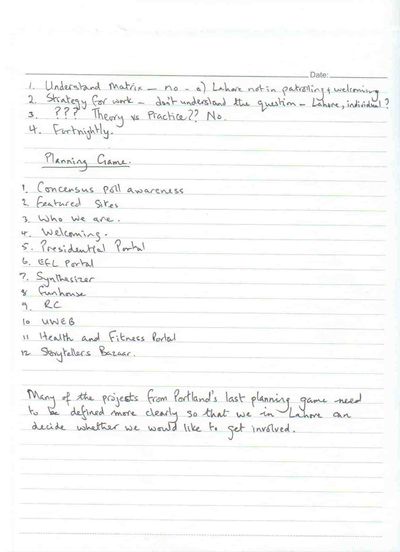 Date:
1. Understand Matrix – no - a) Lahore not in patrolling + welcoming
2. Strategy for work – don't understand the question – Lahore, individual?
3. ??? Theory vs Practice?? No.
4. Fortnightly.
Planning Game.
1. Concensus poll awareness
2 Featured Sites
3. Who we are.
4. Welcoming.
5. Presidential Portal
6. EFL Portal
7. Synthesizer
8 Funhouse
9. RC
10 UWEB
11 Health and Fitness Portal
12 Storytellers Bazaar.
Many of the projects from Portland's last planning game need
to be defined more clearly so that we in Lahore can
decide whether we would like to get involved.